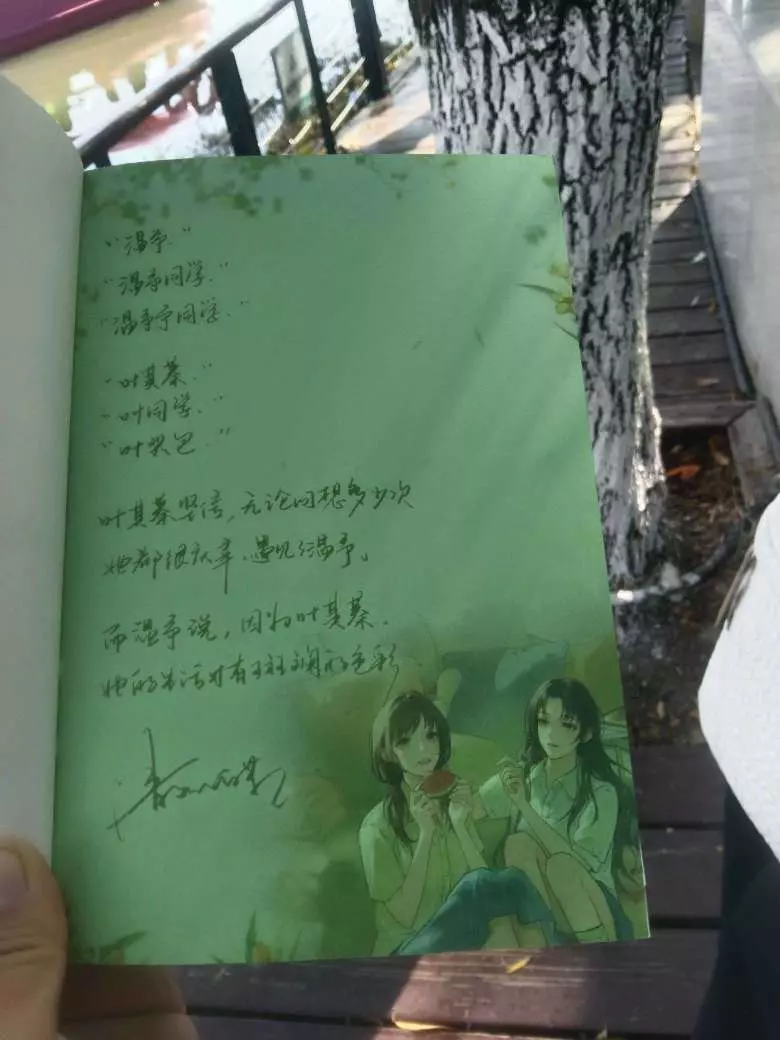 “温予.”
“温予同学.”
“温予予同学.”
“叶其蓁.”
“叶同学.”
“叶哭包.”
叶其蓁坚信, 无论回想多少次
她都很庆幸、遇见了温予。
而温予说, 因为叶其蓁.
她的生活才有了斑斓的色彩